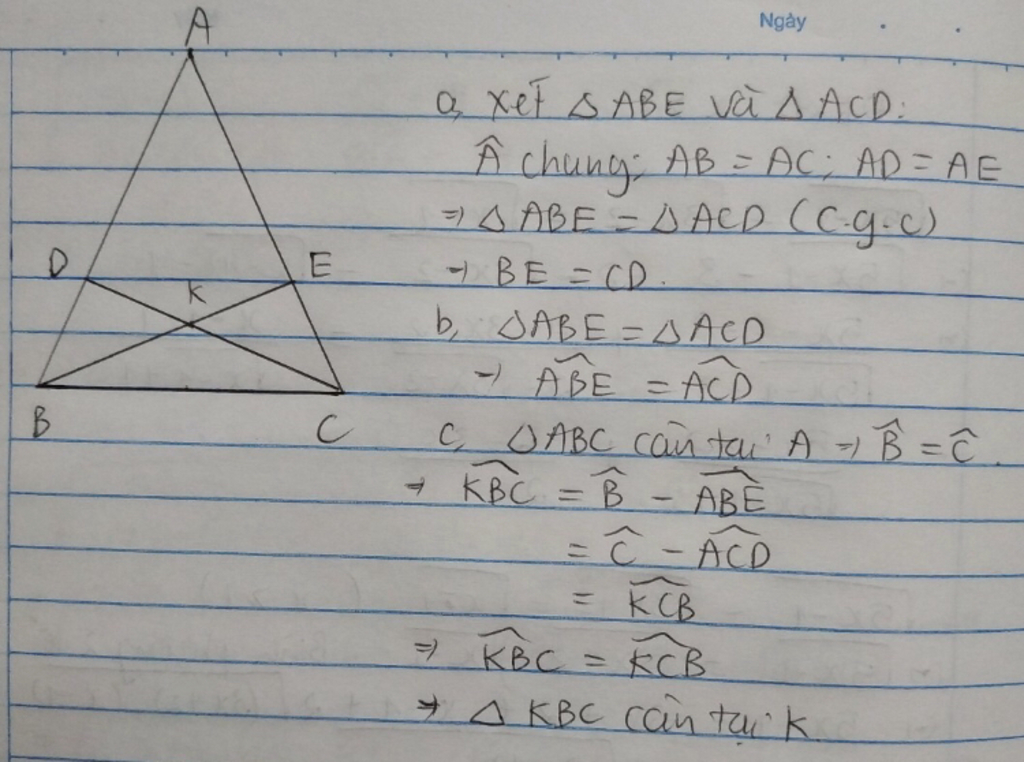 Ngày
A
a, xét △ABE và △ACD:
Â chung; AB = AC; AD = AE
⇒ △ABE = △ACD (c.g.c)
D
E
K
→ BE = CD.
b, △ABE = △ACD
→ \widehat{ABE} = \widehat{ACD}
B
C
c, △ABC cân tại A → \widehat{B} = \widehat{C}.
→ \widehat{KBC} = \widehat{B} - \widehat{ABE}
= \widehat{C} - \widehat{ACD}
= \widehat{KCB}
⇒ \widehat{KBC} = \widehat{KCB}
→ △KBC cân tại K.